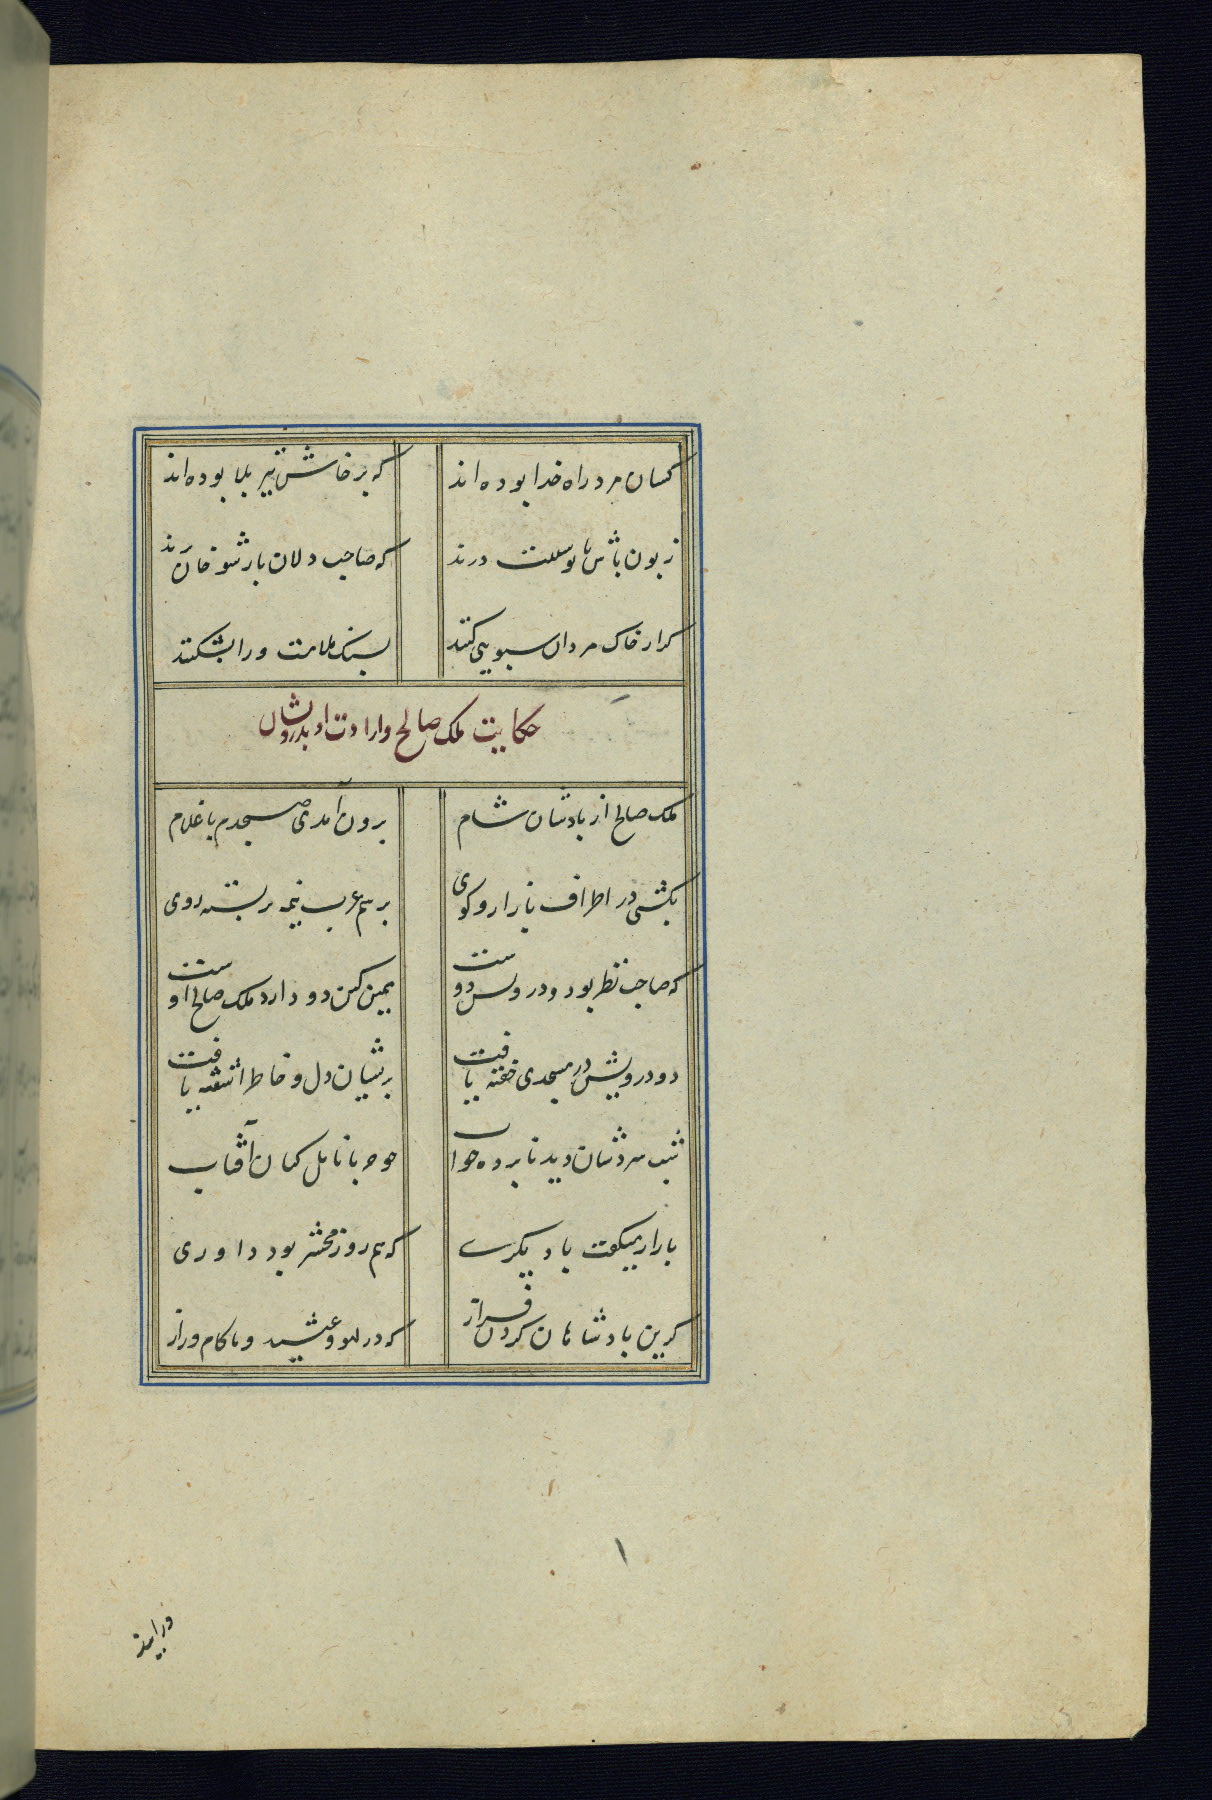 کسان مرد راه خدا بوده‌اند که برخاش تیر بلا بوده‌اند
زبون باش تا پوستت درند که صاحب دلان بار شوخان برند
کر از خاک مردان سبویی کنند بسنک ملامت ورا بشکنند
حکایت ملک صالح و ارادت او بدرویشان
ملک صالح از بادشاهان شام برون آمدی صبحدم با غلام
بکشتی در اطراف بازار و کوی برسم عرب نیمه بربسته روی
که صاحب نظر بود و درویش دوست همین کین دو دارد ملک صالح اوست
دو درویش در مسجدی خفته یافت بریشان دل و خاطر آشفته یافت
شب سردشان دیده نابرده خواب جو حربا تامل کنان آفتاب
یکی زان دو میکفت با دیکری که هم روز محشر بود داوری
کرین بادشاهان کردن فراز که در لهو و عیشند و با کام و ناز
در آیند
۱